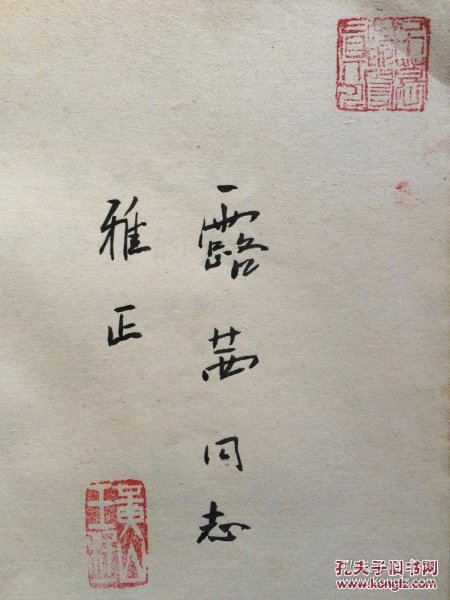 露茜同志
雅正
孔夫子旧书网
www.kongfz.com